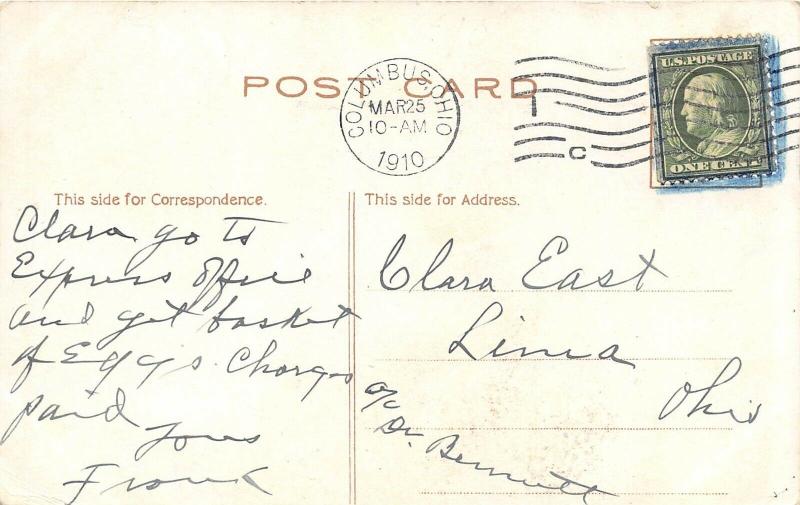 POST CARD
COLUMBUS, OHIO
MAR 25
10-AM
1910
1
C
U.S. POSTAGE
ONE CENT
This side for Correspondence.
This side for Address.
Clara go to
Express Office
and get basket
of Eggs. Charges
paid
Yours
Frank
Clara East
Lima
Ohio
a/c
Dr. Bennett